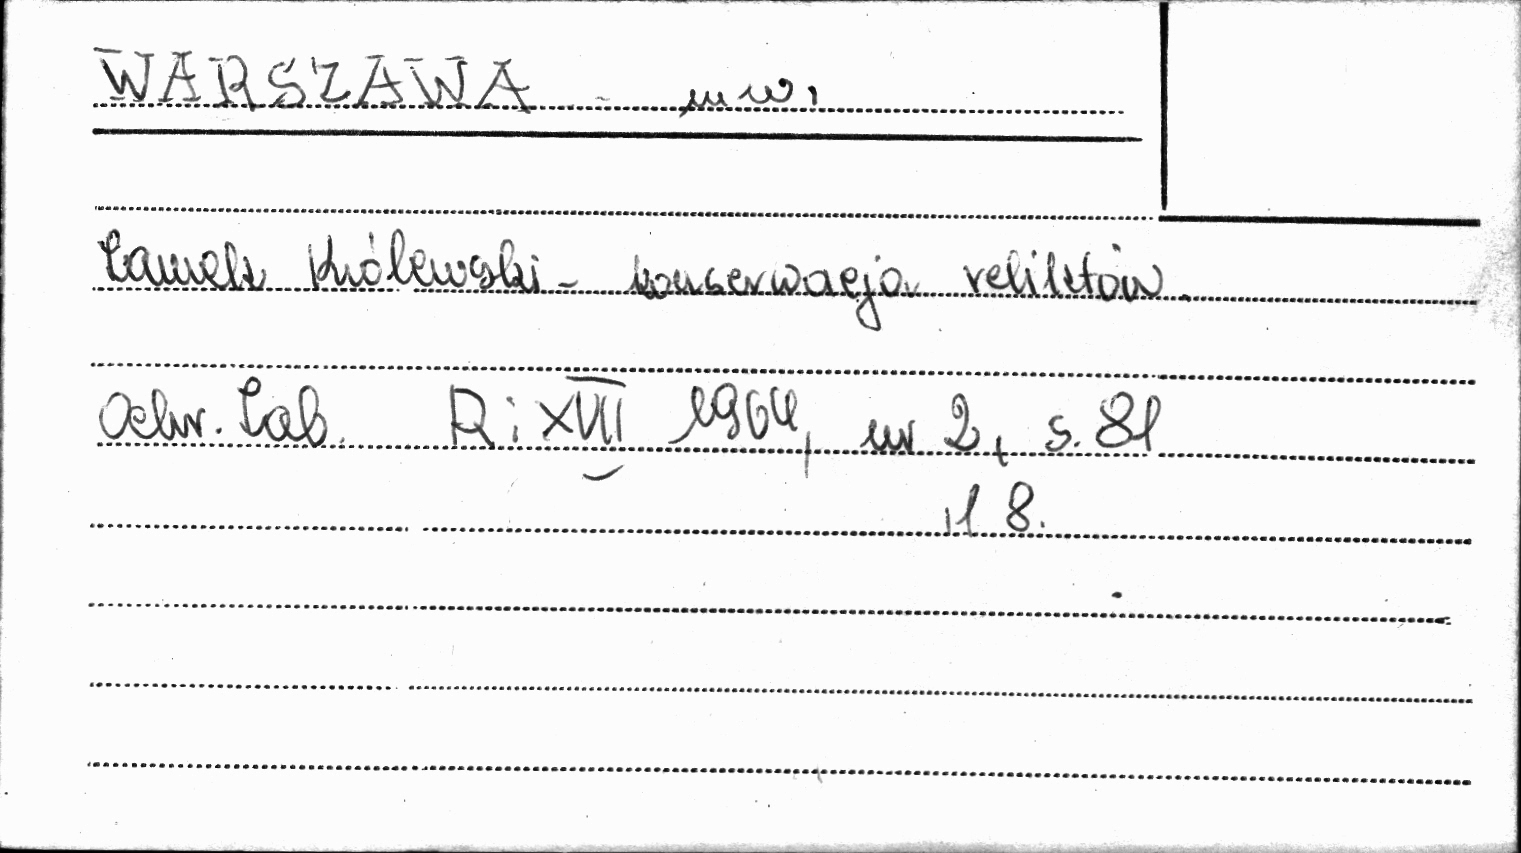 WARSZAWA - m.w.
Zamek Królewski - konserwacja reliktów.
Ochr. Zab. R: XVII 1964, nr 2, s. 81
il 8.